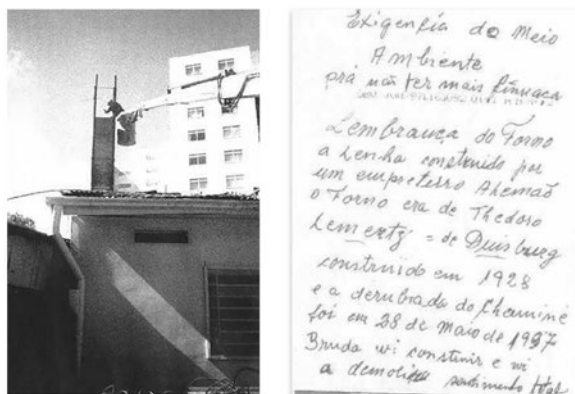 Exigenfia do Meio
Ambiente
prá não ter mais fumaca
Lembrança do Forno
a Lenha construido por
um empreterro Alemaõ
o Forno era de Thedoro
Lemertz = de Duisburg
construido em 1928
e a derubrada do Chaminé
foi em 28 de Maio de 1997
vi construir e vi
a sentimento total